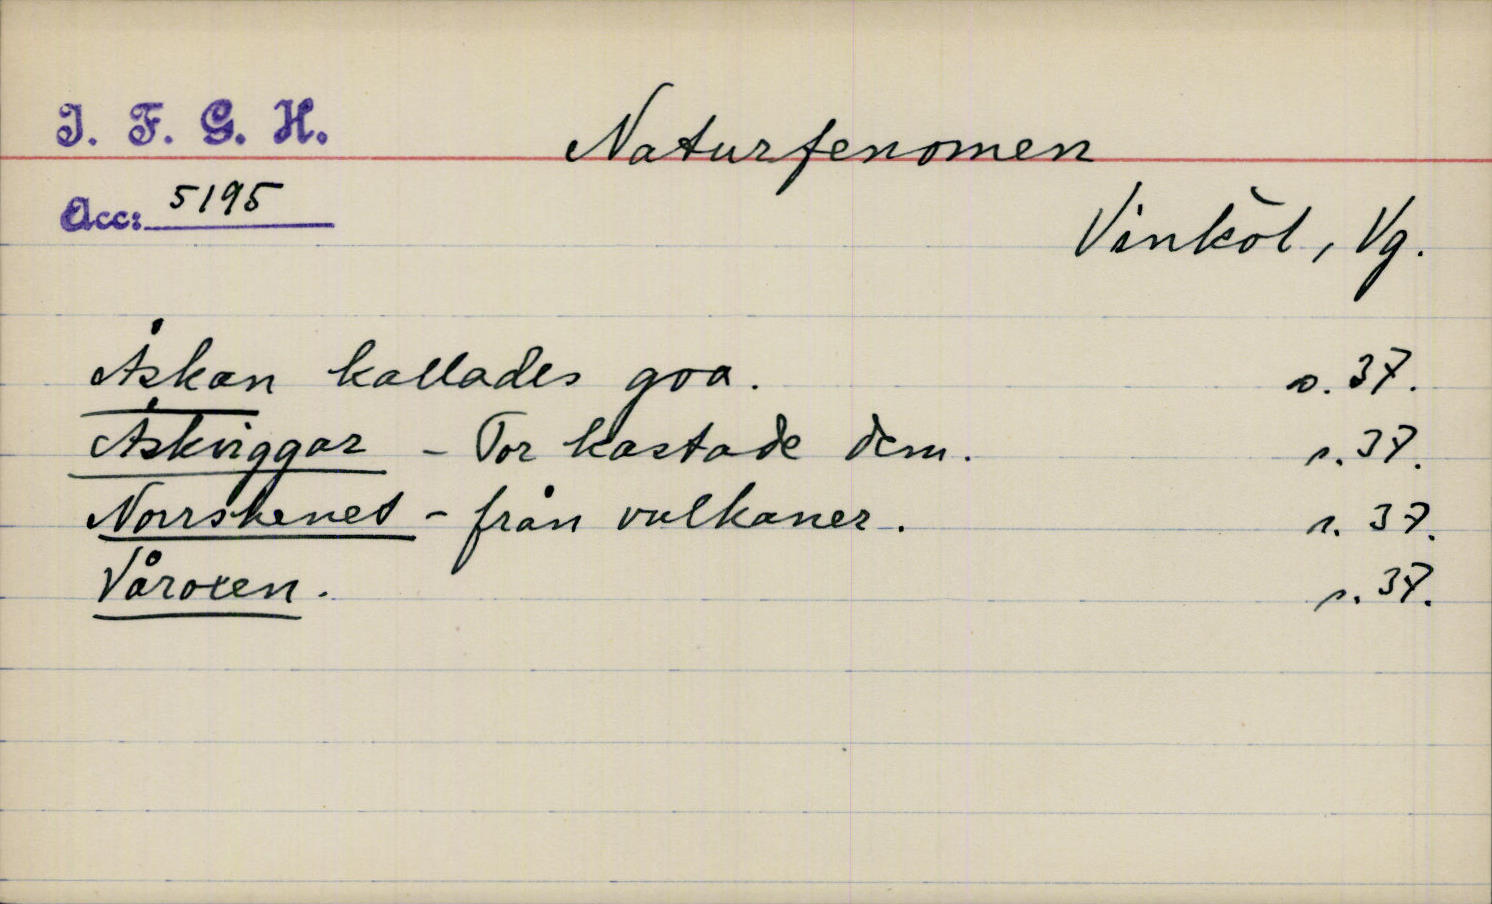 I. F. G. H.
Naturfenomen
Acc: 5195
Vinköl, Vg.
Åskan kallades goa. s. 37.
Åskviggar - Tor kastade dem. s. 37.
Norrskenet - från vulkaner. s. 37.
Våroxen. s. 37.